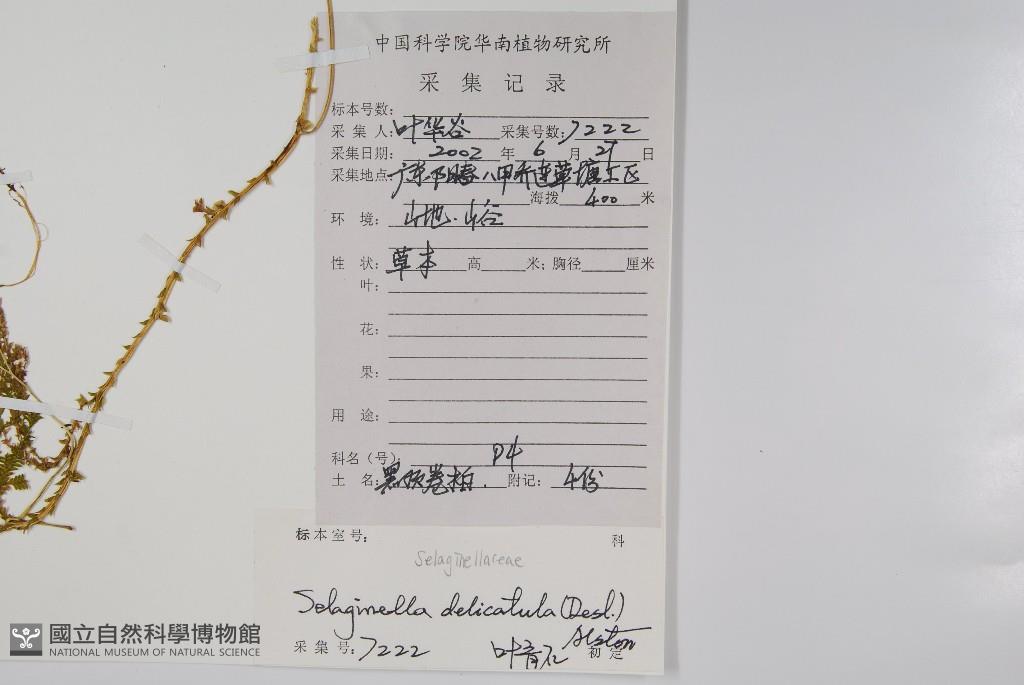 中国科学院华南植物研究所
采集记录
标本号数:
采集人: 叶华谷 采集号数: 7222
采集日期: 2002 年 6 月 21 日
采集地点: 广东阳春八甲
海拔 400 米
环境: 山地.山谷
性状: 草本 高 米; 胸径 厘米
叶:
花:
果:
用途:
科名(号): P4
土名: 黑顶卷柏. 附记: 4份
标本室号: 科
Selaginellaceae
Selaginella delicatula (Desl.)
Alston
采集号: 7222 叶育石 初定
國立自然科學博物館
NATIONAL MUSEUM OF NATURAL SCIENCE